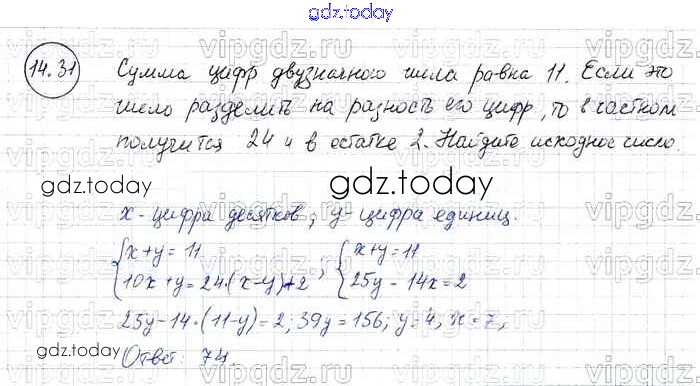 gdz.today
14.31
Сумма цифр двузначного числа равна 11. Если это
число разделить на разность его цифр, то в частном
получится 24 и в остатке 2. Найдите исходное число.
gdz.today gdz.today
x - цифра десятков; y - цифра единиц.
{x+y=11 {x+y=11
{10x+y=24·(x-y)+2; {25y-14x=2
25y-14·(11-y)=2; 39y=156; y=4, x=7;
gdz.today
Ответ: 74.
vipgdz.ru